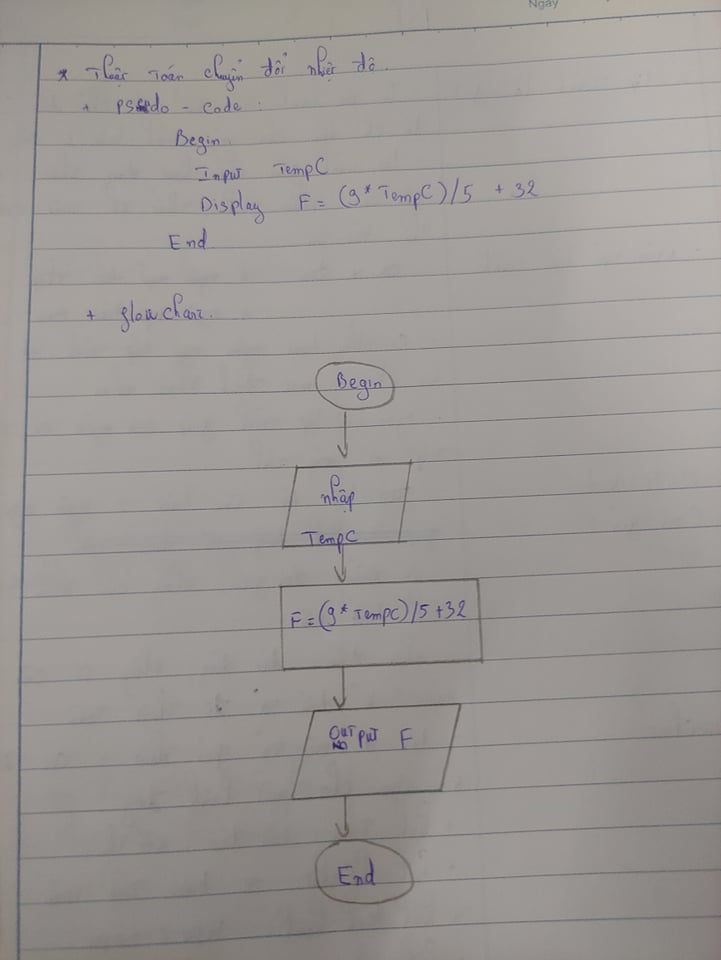 Ngày
* Thuật Toán chuyển đổi nhiệt độ.
+ Pseudo - code :
Begin
Input TempC
Display F = (9* TempC)/5 + 32
End
+ flowchart.
Begin
nhập
TempC
F = (9* TempC)/5+32
OUTPUT F
End